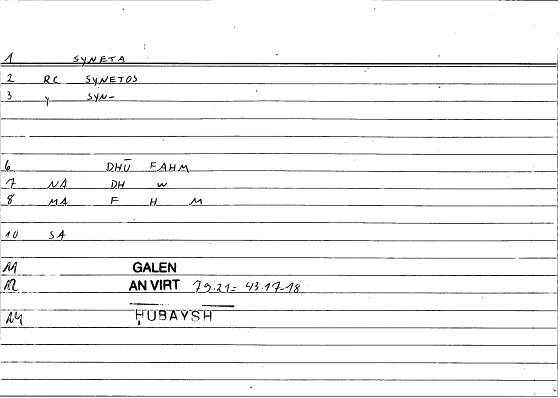 1 SYNETA
2 RC SYNETOS
3 y SYN-
6 DHŪ FAHM
7 NA DH W
8 MA F H M
10 SA
11 GALEN
12 AN VIRT 79.21 = 43.17-18
14 ḤUBAYSH